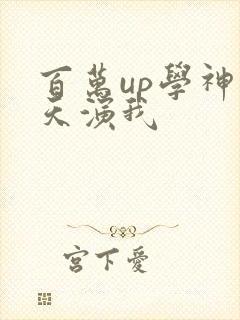 百萬up學神天天演我
宮下愛